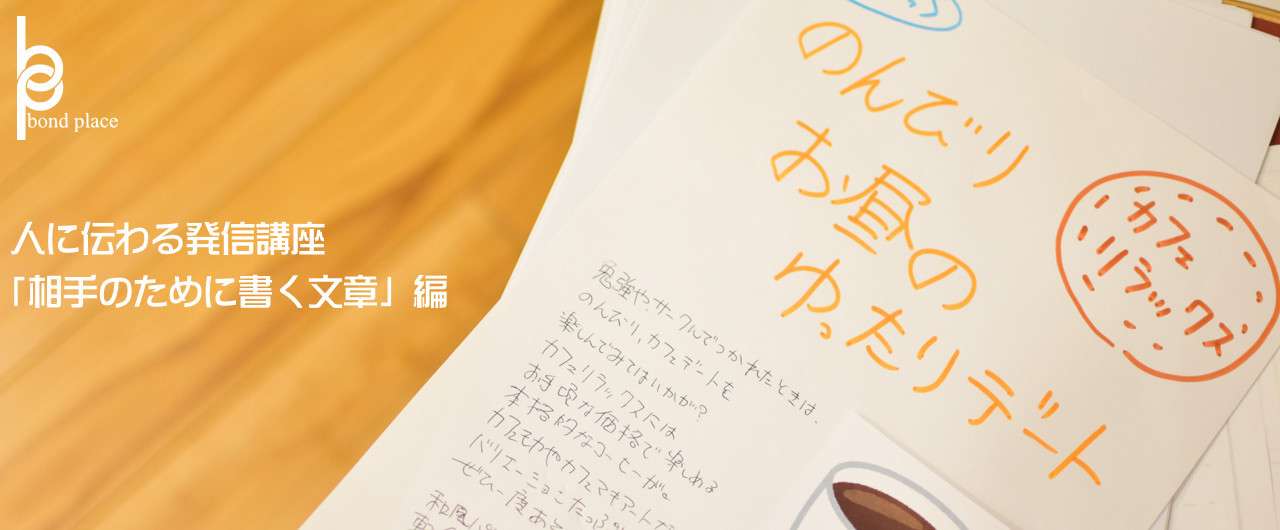 bond place
人に伝わる発信講座
「相手のために書く文章」編
のんびり
お昼の
ゆったりデート
カフェ
リラックス
勉強や、サークルでつかれたときは、
のんびり、カフェデートを
楽しんでみてはいかが?
カフェリラックスには
お手頃な価格で楽しめる
本格的なコーヒーが。
カフェモカやカフェマキアートだ
バリエーションたっぷ
ぜひ一度あ
和風